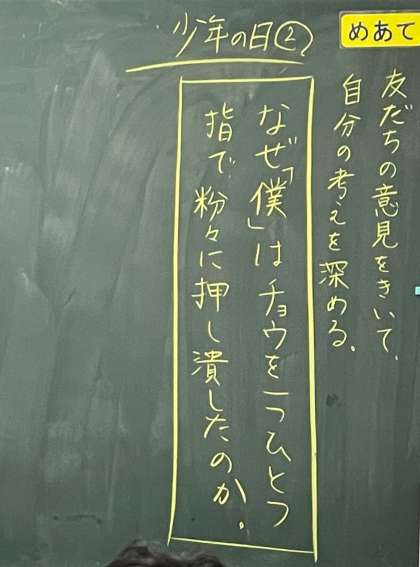 めあて
友だちの意見をきいて、
自分の考えを深める。
少年の日②
なぜ「僕」はチョウを一つひとつ
指で粉々に押し潰したのか。